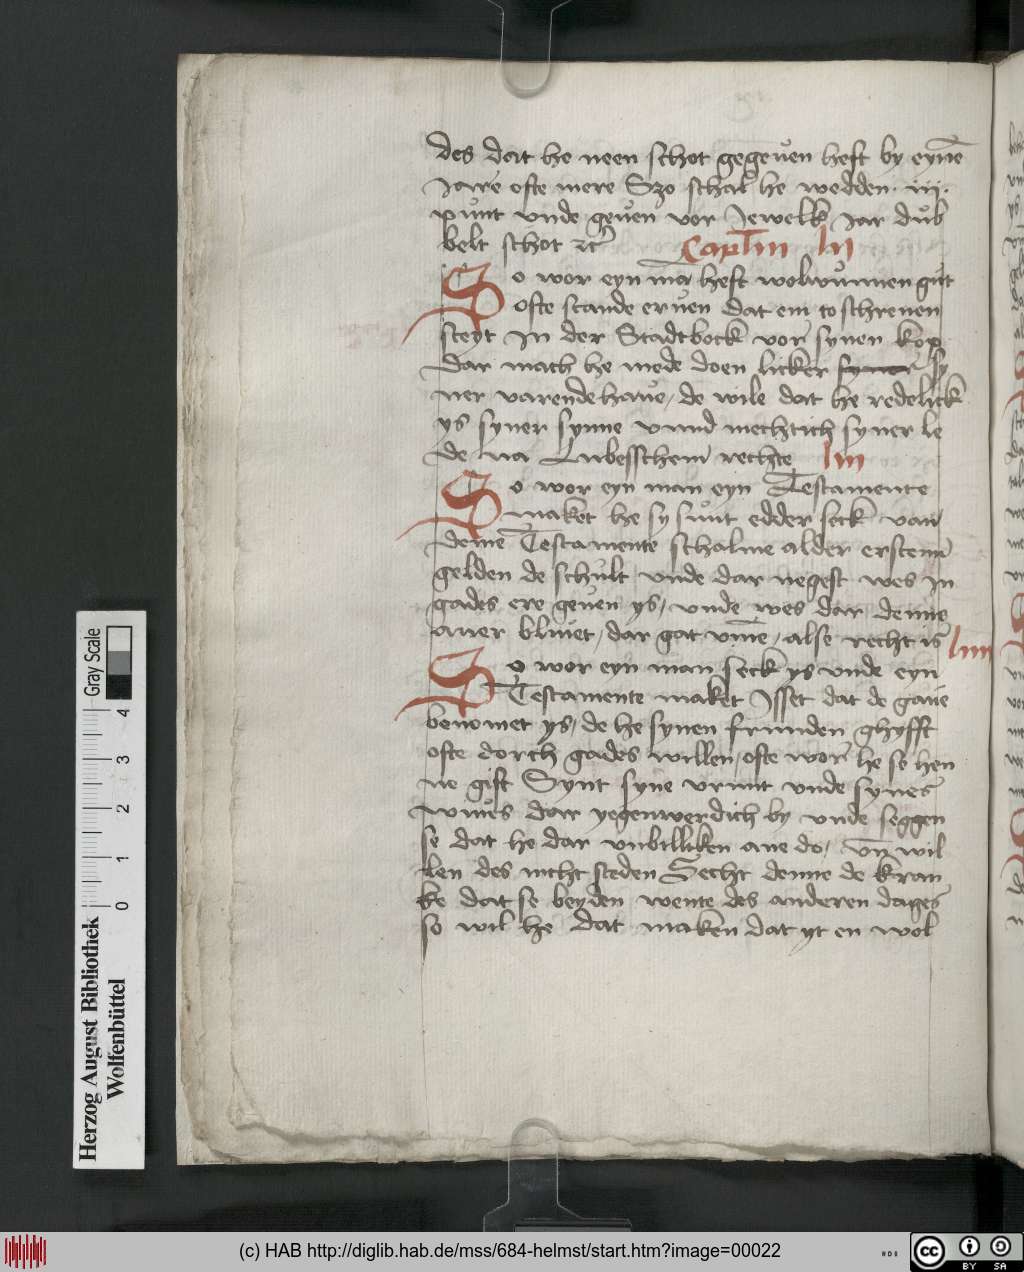 des dat he neen schot gegeuen heft by eyne
Jare ofte mere Szo schal he wedden iij.
punt vnde geuen vor Jewelk Jar dub
belt schot rc Caplm lij
So wor eyn ma heft wolwunnen gut
ofte stande eruen dat em to schreuen
steyt In der Stadtbock vor synen kop
dar mach he mede doen licker syner sy
ner varende haue, de wile dat he redelick
ys syner synne vnnd mechtich syner le
de na Lubesschem rechte liij
So wor eyn man eyn Testamente
maket he sy sunt edder seck van
deme Testamente schalme alder ersten
gelden de schult vnde dar negest wes in
gades ere geuen ys, vnde wes dar denne
auer bliuet, dar gat vme, alse recht is liiij
So wor eyn man seck ys vnde eyn
Testamente maket Isset dat de gaue
benomet ys, de he synen frunden ghyfft
ofte dorch gades willen, ofte wor he se hen
ne gift Synt syne vrunt vnde synes
wiues dar yegenwerdich by vnde seggen
se dat he dar vnbilliken ane do, vn wil
len des nicht steden Secht denne de kran
ke dat se beyden wente des anderen dages
so wil he dat maken dat yt en wol
Herzog August Bibliothek
Wolfenbüttel
Gray Scale
0 1 2 3 4
(c) HAB http://diglib.hab.de/mss/684-helmst/start.htm?image=00022
cc BY SA